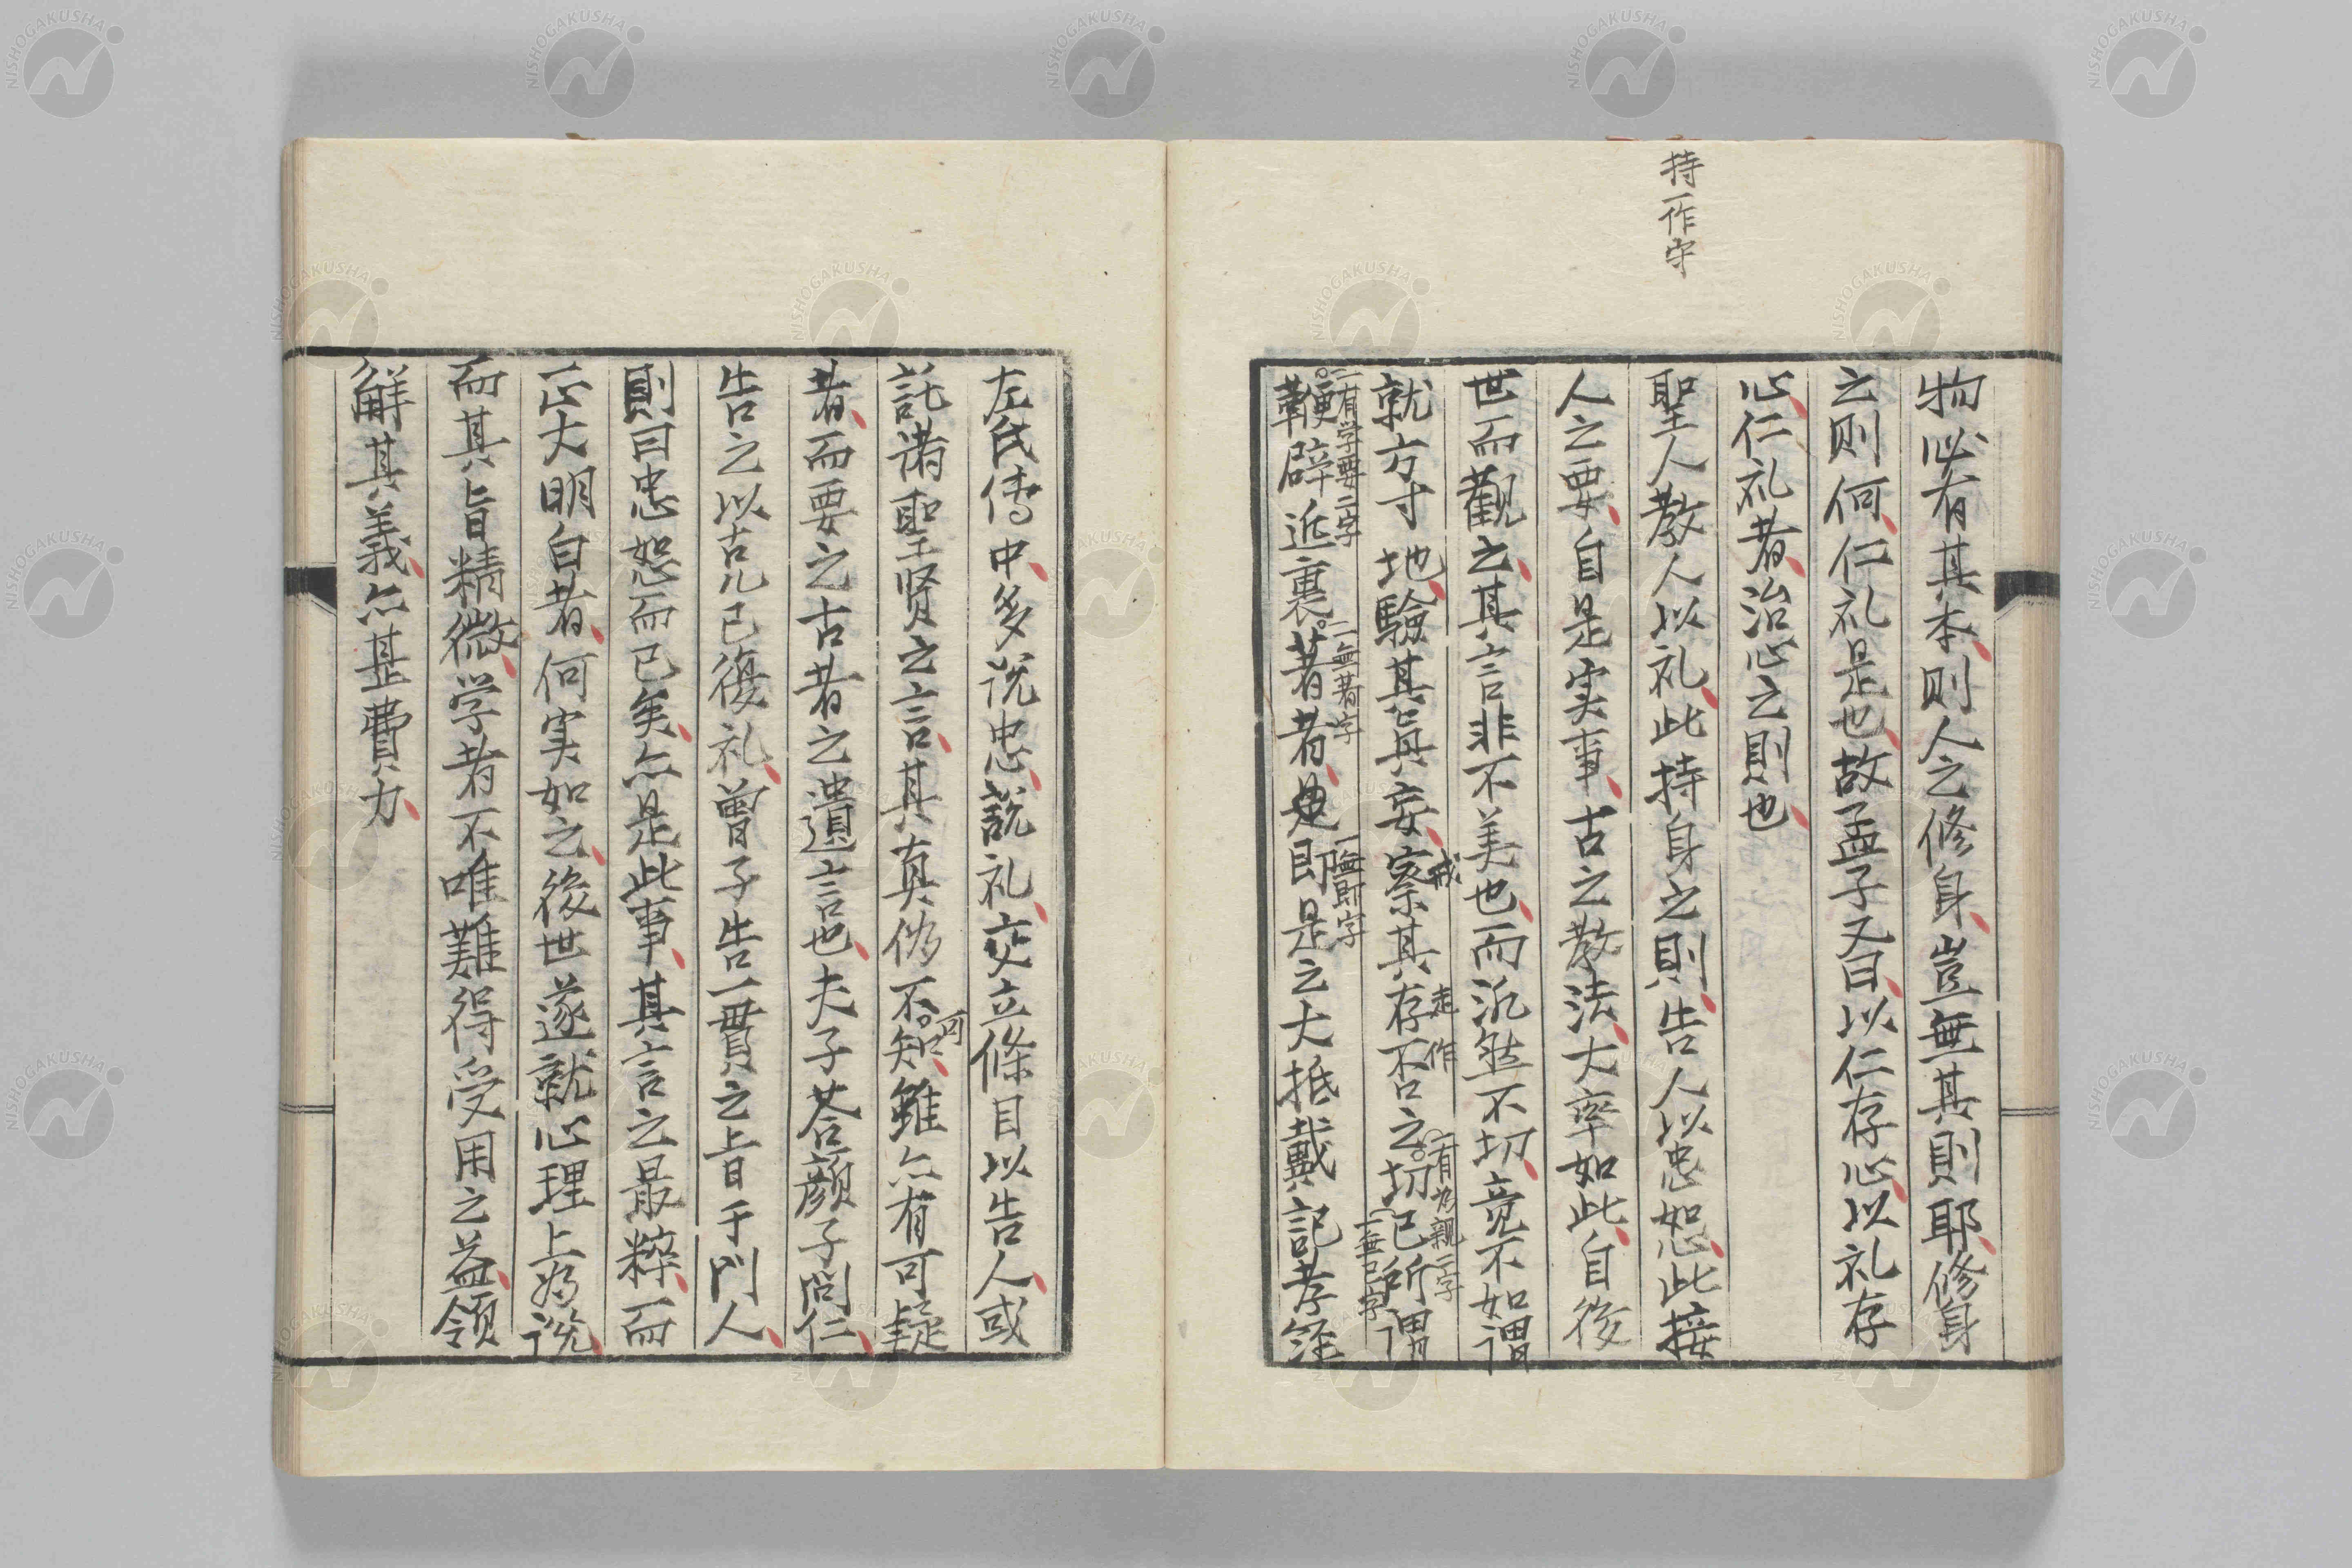 持一作守
物必有其本則人之修身豈無其則耶修身
之則何仁礼是也故孟子又曰以仁存心以礼存
心仁礼者治心之則也
聖人教人以礼此持身之則告人以忠恕此接
人之要自是実事古之教法大率如此自後
世而觀之其言非不美也而汎然不切竟不如謂
就方寸地驗其真妄察其存否之切已所謂
戒
走作
一有為親二字
一無已字
鞭辟近裏著者是即是之大抵戴記孝經
一有学要二字
一無著字
一無即字
左氏傳中多説忠説礼交立條目以告人或
託諸聖賢之言其真偽不知雖亦有可疑
可
者而要之古者之遺言也夫子荅顔子問仁
告之以克己復礼曽子告一貫之旨于門人
則曰忠恕而已矣亦是此事其言之最粹而
正大明白者何実如之後世遂就心理上為説
而其旨精微学者不唯難得受用之益領
解其義亦甚費力
NISHOGAKUSHA